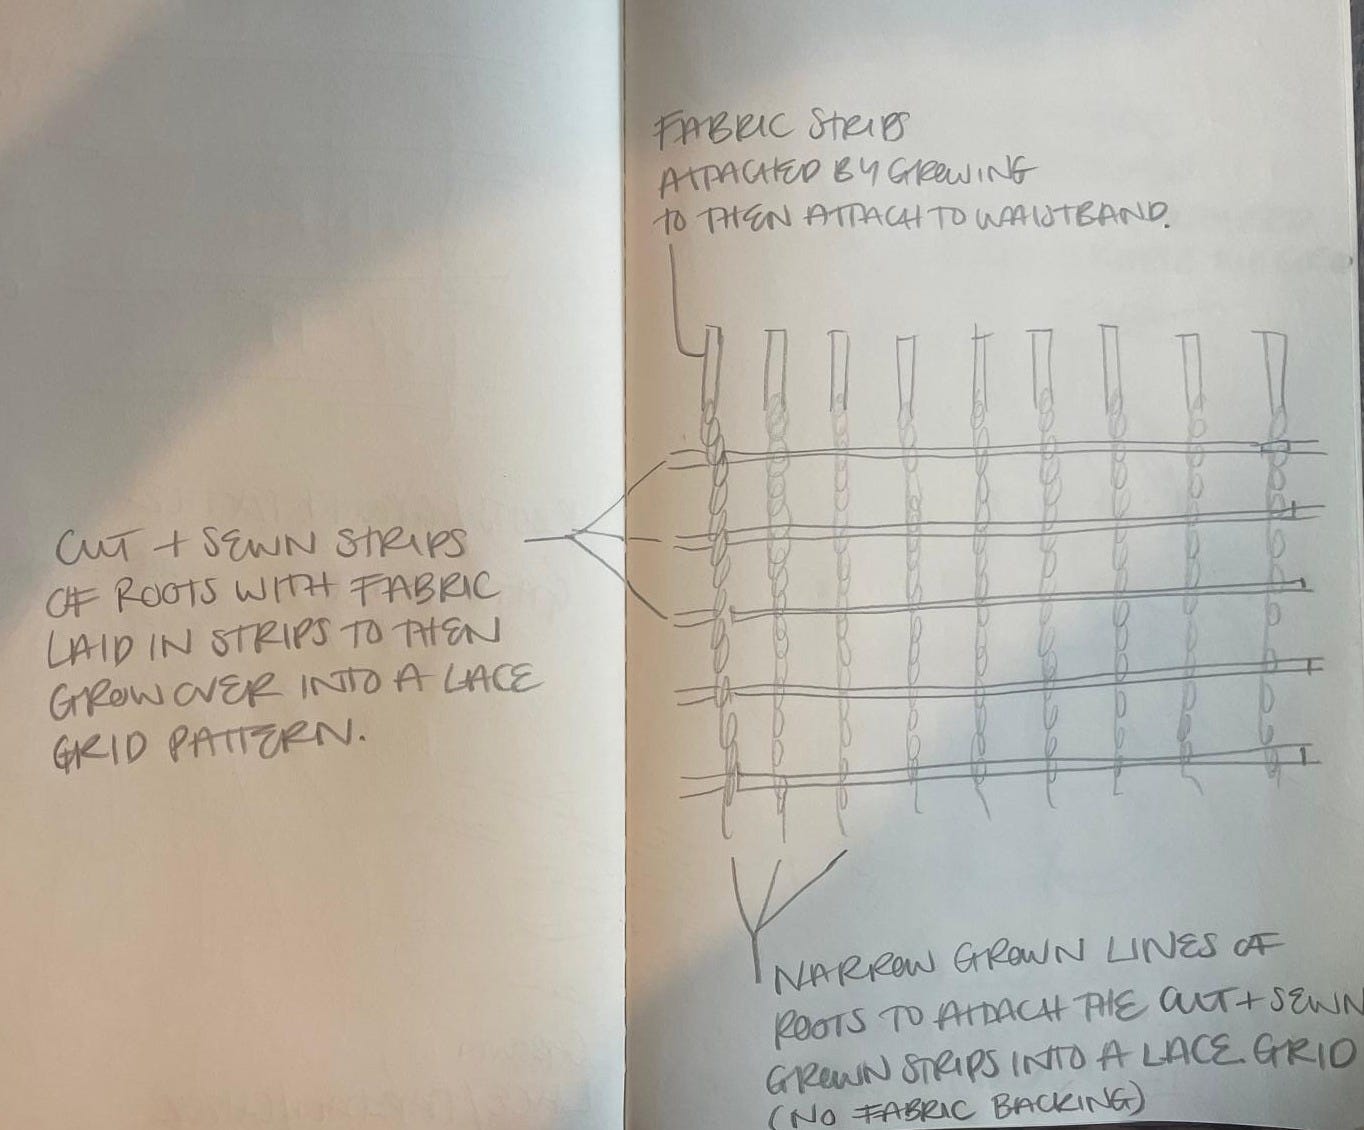 FABRIC STRIPS
ATTACHED BY GROWING
TO THEN ATTACH TO WAISTBAND.
CUT + SEWN STRIPS
OF ROOTS WITH FABRIC
LAID IN STRIPS TO THEN
GROW OVER INTO A LACE
GRID PATTERN.
NARROW GROWN LINES OF
ROOTS TO ATTACH THE CUT + SEWN
GROWN STRIPS INTO A LACE GRID
(NO FABRIC BACKING)